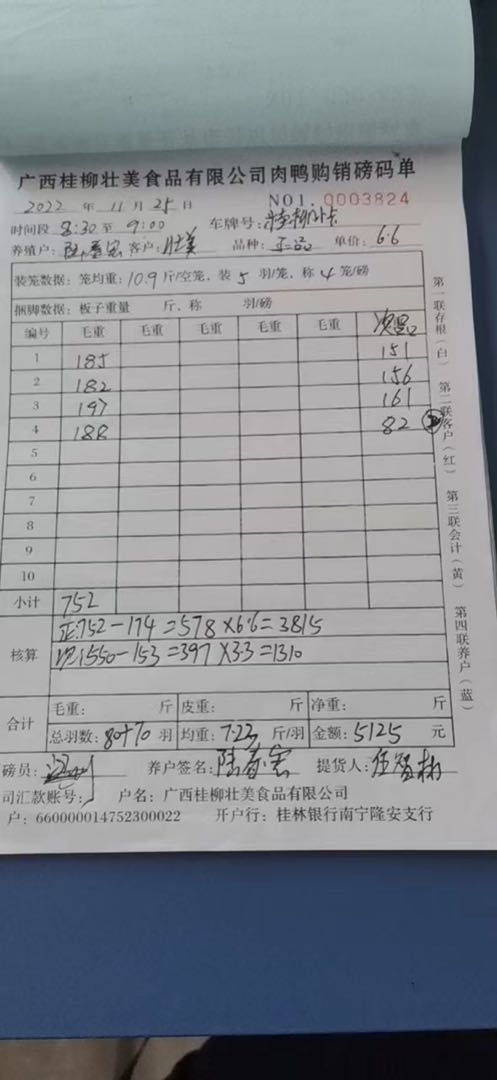 广西桂柳壮美食品有限公司肉鸭购销磅码单
2022 年 11 月 25 日 NO1. 0003824
时间段 8:30 至 9:00 车牌号:
养殖户: 客户: 壮美 品种: 正品 单价: 6.6
装笼数据: 笼均重: 10.9 斤/空笼、装 5 羽/笼、称 4 笼/磅
捆脚数据: 板子重量 斤、称 羽/磅
编号 毛重 毛重 毛重 毛重 毛重 次品
1 185 151
2 182 156
3 197 161
4 188 82
5
6
7
8
9
10
小计 752
核算 正:752-174=578×6.6=3815
次:550-153=397×3.3=1310
合计 毛重: 斤 皮重: 斤 净重: 斤
总羽数: 80+70 羽 均重: 7.23 斤/羽 金额: 5125 元
磅员: 养户签名: 提货人:
司汇款账号: 户名: 广西桂柳壮美食品有限公司
户: 660000014752300022 开户行: 桂林银行南宁隆安支行
第一联存根(白) 第二联客户(红) 第三联会计(黄) 第四联养户(蓝)